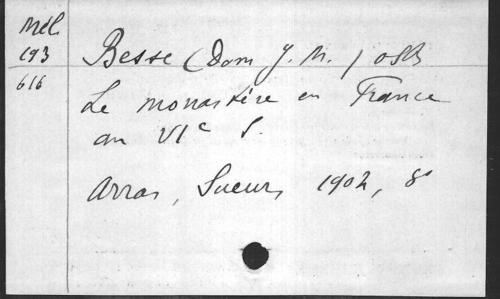 Mél
193
616
Besse (Dom J. M.) OSB
Le monastère en France
au VIe s.
Arras, Sueur, 1902, 8°